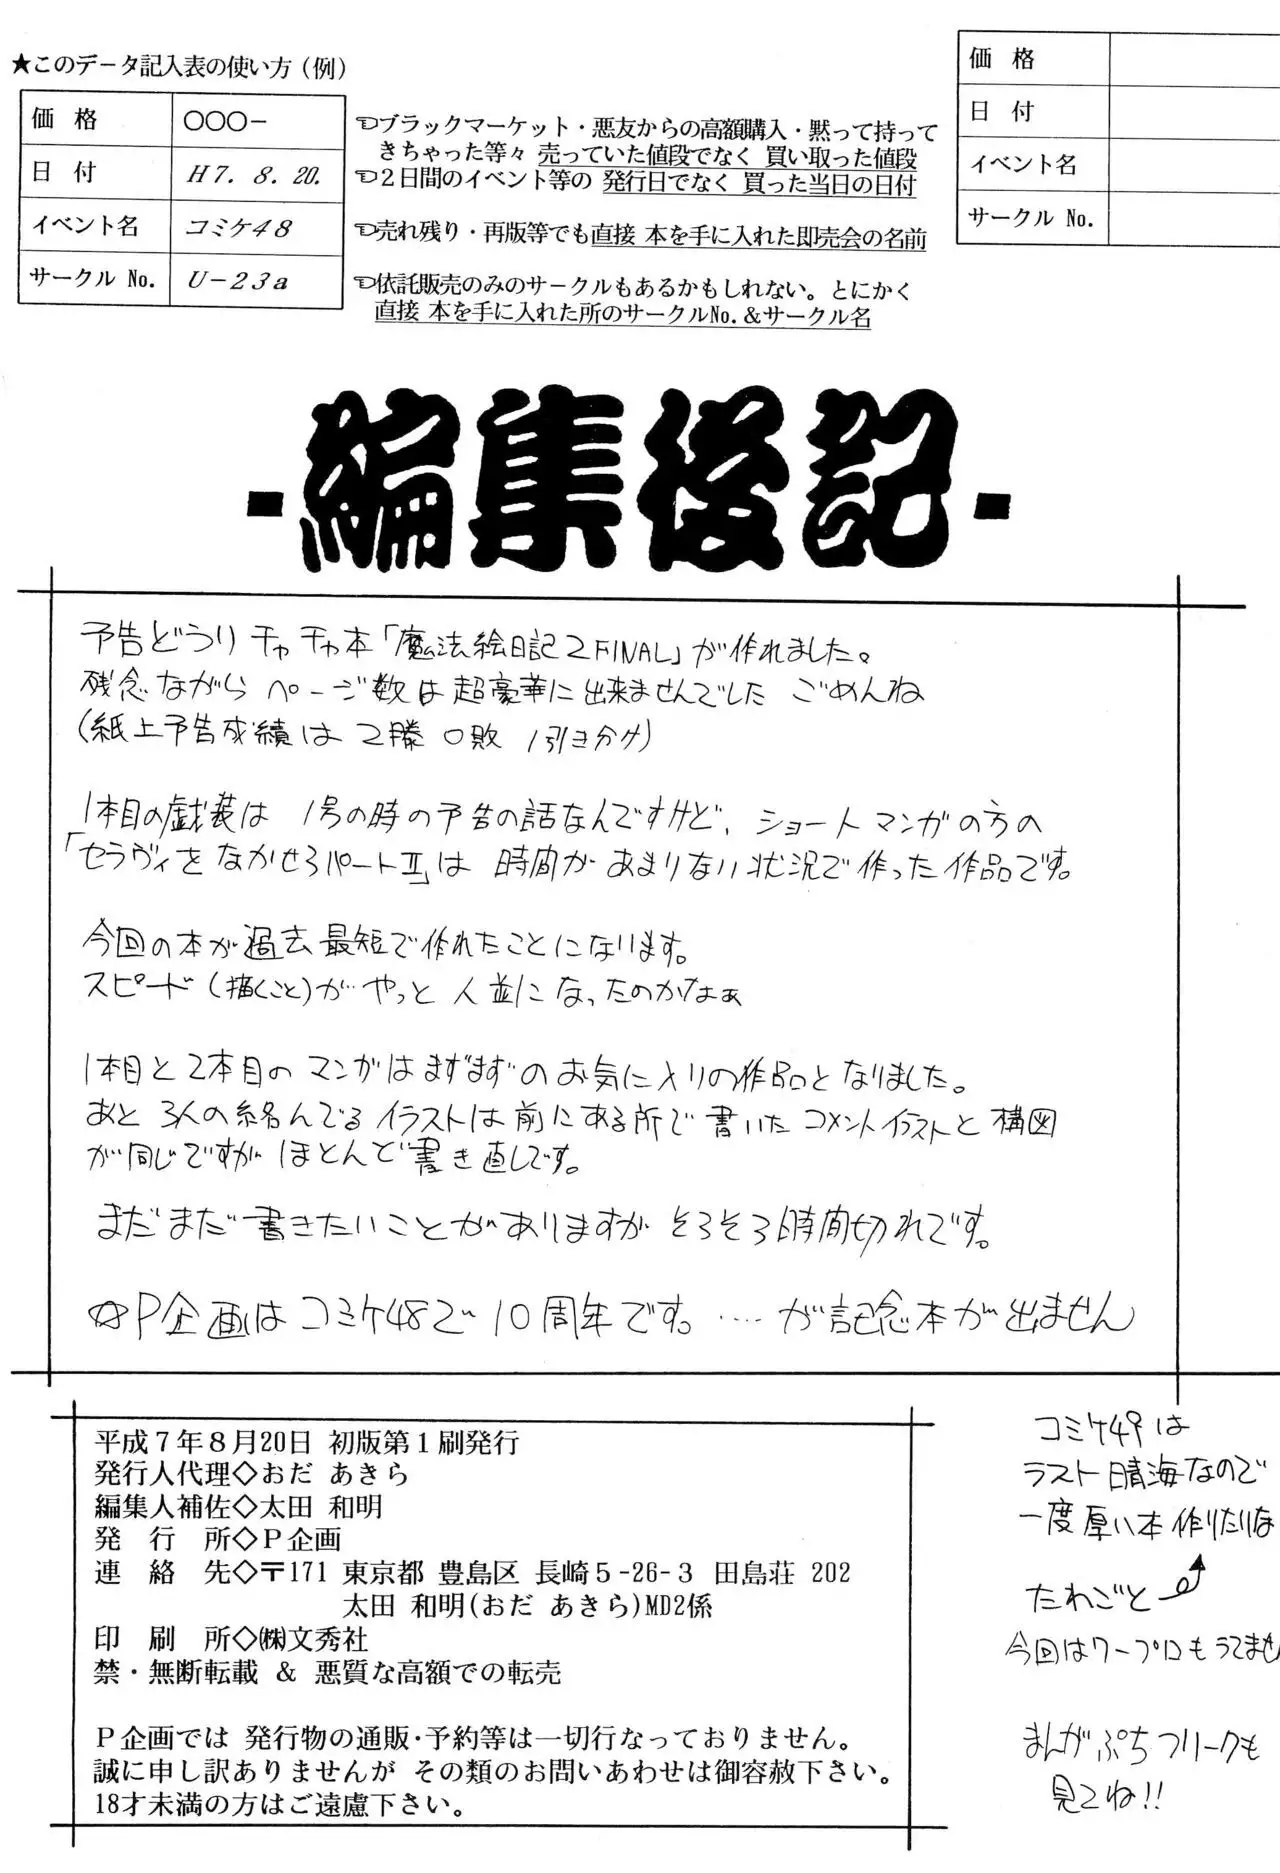 ★このデータ記入表の使い方（例）
価格 ○○○-
日付 H7. 8. 20.
イベント名 コミケ48
サークル No. U-23a
☜ブラックマーケット・悪友からの高額購入・黙って持って
きちゃった等々 売っていた値段でなく 買い取った値段
☜２日間のイベント等の 発行日でなく 買った当日の日付
☜売れ残り・再版等でも直接 本を手に入れた即売会の名前
☜依託販売のみのサークルもあるかもしれない。とにかく
直接 本を手に入れた所のサークルNo.＆サークル名
価格
日付
イベント名
サークル No.
-編集後記-
予告どうり チャチャ本「魔法絵日記2FINAL」が作れました。
残念ながら ページ数は超豪華に出来ませんでした ごめんね
(紙上予告成績は 2勝 0敗 1引き分け)
1本目の戯装は 1号の時の予告の話なんですけど、ショートマンガの方の
「セラヴィをなかせろパートⅡ」は 時間があまりない状況で作った作品です。
今回の本が過去最短で作れたことになります。
スピード(描くこと)が やっと 人並になったのかなぁ
1本目と2本目の マンガはまずまずの お気に入りの作品となりました。
あと 3人の絡んでる イラストは前にある所で書いた コメントイラストと構図
が同じですが ほとんど書き直しです。
まだまだ書きたいことがありますが そろそろ時間切れです。
☆P企画はコミケ48で10周年です。‥‥が記念本が出ません
平成７年８月20日 初版第１刷発行
発行人代理◇おだ あきら
編集人補佐◇太田 和明
発行所◇Ｐ企画
連絡先◇〒171 東京都 豊島区 長崎５-26-３ 田島荘 202
太田 和明(おだ あきら)MD2係
印刷所◇㈱文秀社
禁・無断転載 ＆ 悪質な高額での転売
Ｐ企画では 発行物の通販・予約等は一切行なっておりません。
誠に申し訳ありませんが その類のお問いあわせは御容赦下さい。
18才未満の方はご遠慮下さい。
コミケ49は
ラスト晴海なので
一度厚い本作りたいな
たわごと
今回はワープロもうてません
まんがぷちフリークも
見てね!!